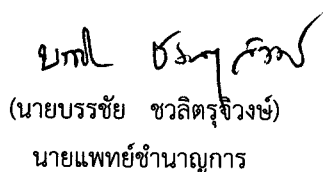 (นายบรรชัย ชวลิตรุจิวงษ์)
นายแพทย์ชำนาญการ